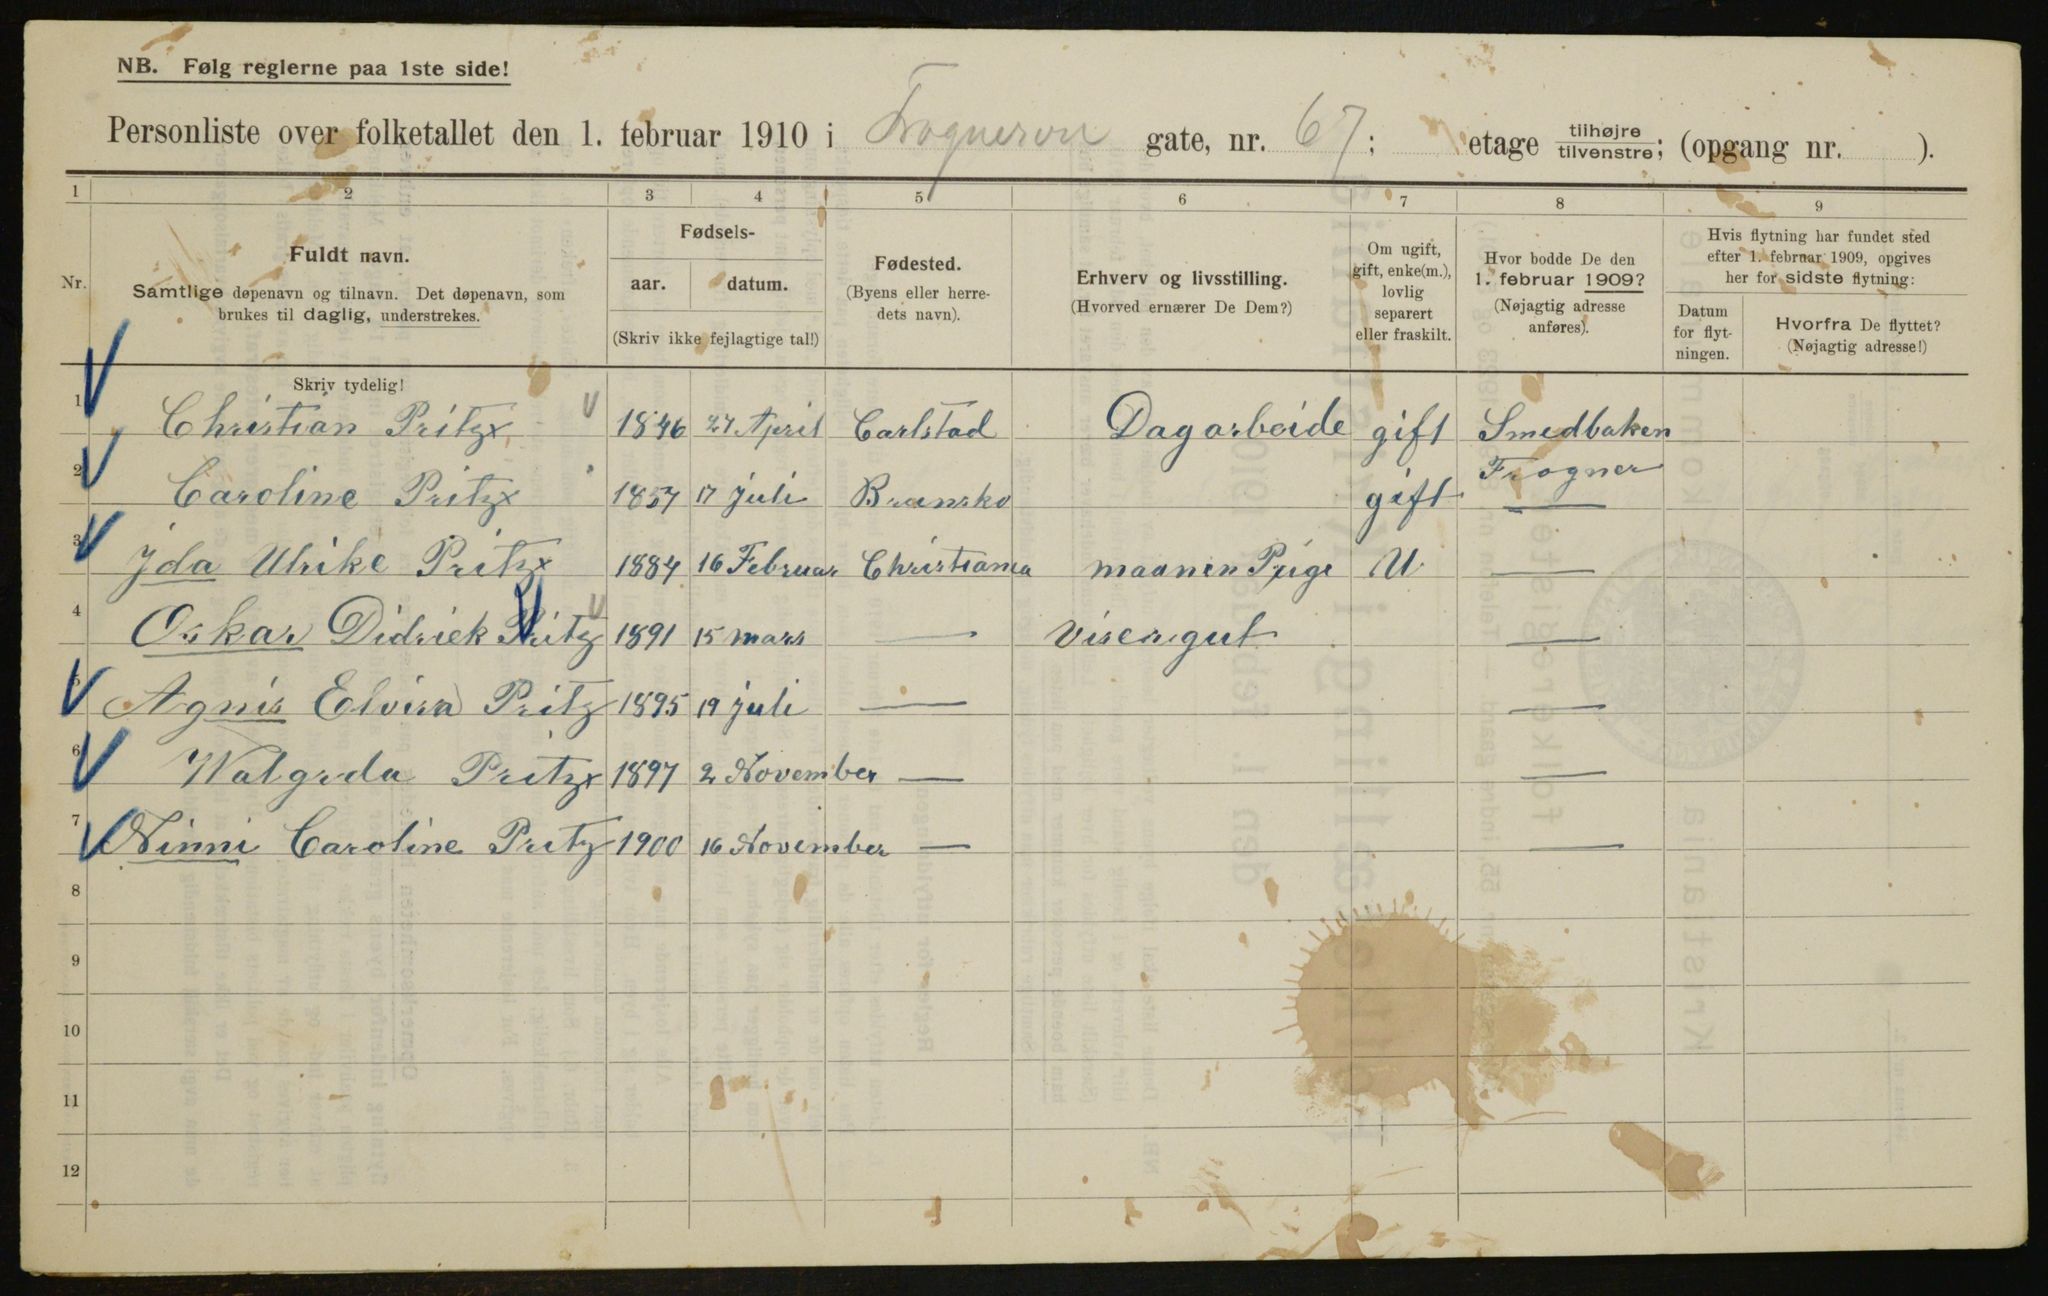 NB. Følg reglerne paa 1ste side!
Personliste over folketallet den 1. februar 1910 i Frogneren gate, nr. 67; etage tilhøjre / tilvenstre; (opgang nr. ).
1 2 3 4 5 6 7 8 9
Nr.
Fuldt navn.
Samtlige døpenavn og tilnavn. Det døpenavn, som
brukes til daglig, understrekes.
Fødsels-
aar. datum.
(Skriv ikke fejlagtige tal!)
Fødested.
(Byens eller herre-
dets navn).
Erhverv og livsstilling.
(Hvorved ernærer De Dem?)
Om ugift,
gift, enke(m.),
lovlig
separert
eller fraskilt.
Hvor bodde De den
1. februar 1909?
(Nøjagtig adresse
anføres).
Hvis flytning har fundet sted
efter 1. februar 1909, opgives
her for sidste flytning:
Datum
for flyt-
ningen.
Hvorfra De flyttet?
(Nøjagtig adresse!)
Skriv tydelig!
1 Christian Pritz 1846 27 April Carlstad Dagarbeide gift Smedbaken
Frogner
2 Caroline Pritz 1857 17 juli Brunsko gift —
3 Ida Ulrike Pritz 1884 16 Februar Christiania U —
4 Oskar Didriek Pritz 1891 15 mars — Visergut —
5 Agnis Elvira Pritz 1895 19 juli — —
6 Walgrda Pritz 1897 2 November — —
7 Ninni Caroline Pritz 1900 16 November — —
8
9
10
11
12